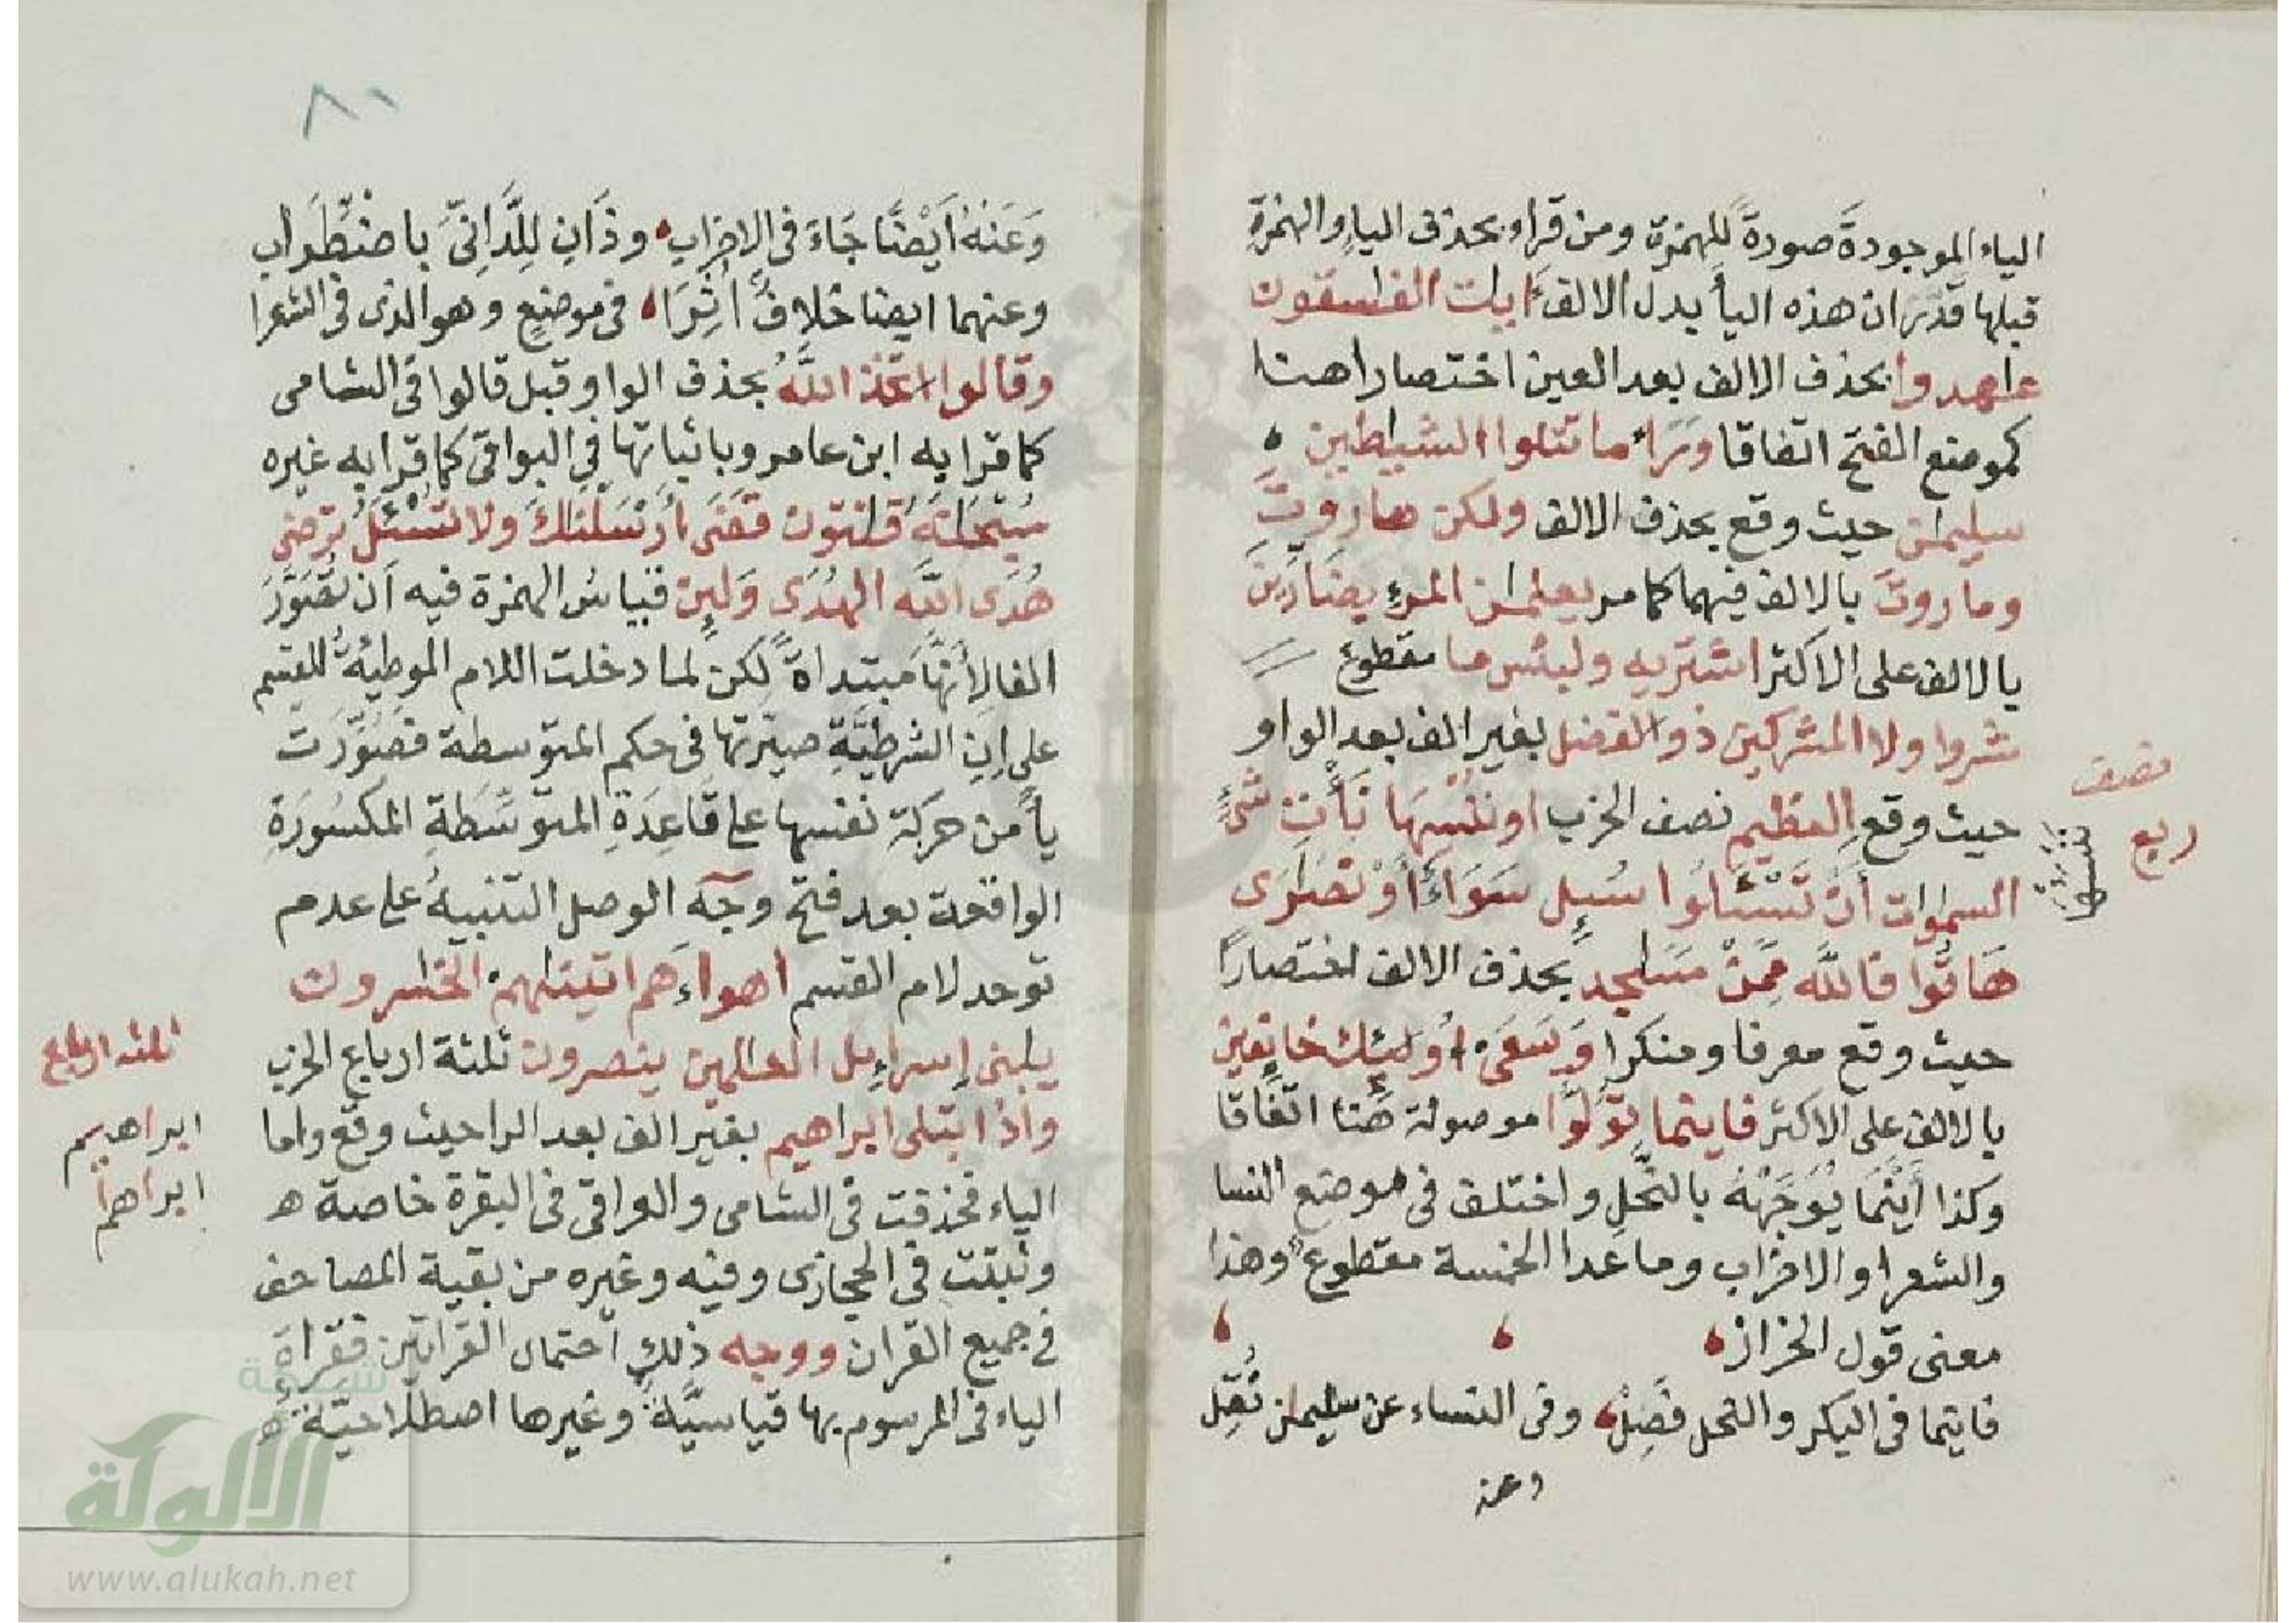 الياء الموجودةَ صورةً للهمزة ومن قراء بحذف الياء والهمزة
قبلها قدّر ان هذه اليأ بدل الالف ءايٰت الفٰسقون
عٰهدوا بحذف الالف بعد العين اختصارا هنا
كموضع الفتح اتفاقا وَرَاءَ ما تتلوا الشيٰطين
سليمٰن حيث وقع بحذف الالف ولكن هاروتَ
وماروتَ بالالف فيهما كما مر يعلمٰن المرءِ بضَارّينَ
بالالف على الاكثر اشتريه ولبئس ما مقطوع
شروا ولا المشركين ذو الفضل بغير الف بعد الواو
حيث وقع العظيم نصف الحزب او ننسها نَأتِ شئٍ
السمٰوات أن تَسْئَلُوا سُيِل سَوَاءَ أوْ نصٰرَى
هَاتُوا فاللّه مِمَّنْ مَسٰجد بحذف الالف اختصارًا
حيث وقع معرفا ومنكرا وَسَعَى أُولَئِك خائفين
بالالف على الاكثر فاينما تُوَلّوا موصولة هُنا اتّفاقا
وكذا أَيْنَمَا يُوَجّهْهُ بالنحلِ واختلف في موضع النسا
والشعرا والاحزاب وما عدا الخمسة مقطوع وهذا
معنى قول الخراز
فاينما في البكر والنحل فَصِلْ وفي النساء عن سليمٰن نُقِل
وعنه
نصف
ربع
ننسها
٨١
وَعَنْهُ اَيْضًا جَاءَ في الاحزاب وذَانِ لِلدَّانِىّ باضْطِرَاب
وعنهما ايضا خلافٌ أُثِرَا في موضعٍ وهو الذى في الشعرا
وقالوا اتخذ اللّهُ بحذف الواو قبل قالوا في الشامى
كما قرا به ابن عامر وباثباتها في البواقى كما قرا به غيره
سُبْحٰنَهُ قٰنتون قضَى أرْسَلْنٰكَ ولا تُسْئَلُ ترضى
هُدَى اللّهِ الهُدَى وَلَئِن قياسُ الهمزة فيه اَن تُصَوَّرَ
الفا لأنّهَا مبتداةٌ لكن لما دخلت اللام الموطِئةُ للقسم
على إنِ الشرطيّةِ صيّرتها في حكم المتوسطة فصُوّرَت
يأً من حركة نفسها على قاعِدَةِ المتوسّطَةِ المكسُورَةِ
الواقعة بعد فتح وجّه الوصل التنبيهُ على عدم
توحد لام القسم اهواءَهم اتينٰهم الخٰسرون
يٰبنى إسراءِيل العٰلمين ينصرون ثلثة ارباع الحزب
واذ ابتلى ابراهيم بغير الف بعد الرا حيث وقع واما
الياء فحذفت في الشامى والعراقى في البقرة خاصة ه
وثبتت في الحجازى وفيه وغيره من بقية المصاحف
في جميع القران ووجه ذلك احتمال القراتين فقراةُ
الياء في المرسوم بها قياسيّةٌ وغيرها اصطلاحيّةٌ ه
ثلثه ارباع
ابراهيم
ابراهم
شبكة
الألوكة
www.alukah.net